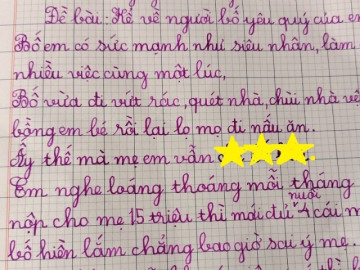 Đề bài: Kể về người bố yêu quý của em
Bố em có sức mạnh như siêu nhân, làm
nhiều việc cùng một lúc,
Bố vừa đi vứt rác, quét nhà, chùi nhà vệ
bồng em bé rồi lại lọ mọ đi nấu ăn.
Ấy thế mà mẹ em vẫn
Em nghe loáng thoáng mỗi tháng
nộp cho mẹ 15 triệu thì mới đủ nuôi 4 cái m
bố hiền lắm chẳng bao giờ sai ý mẹ.